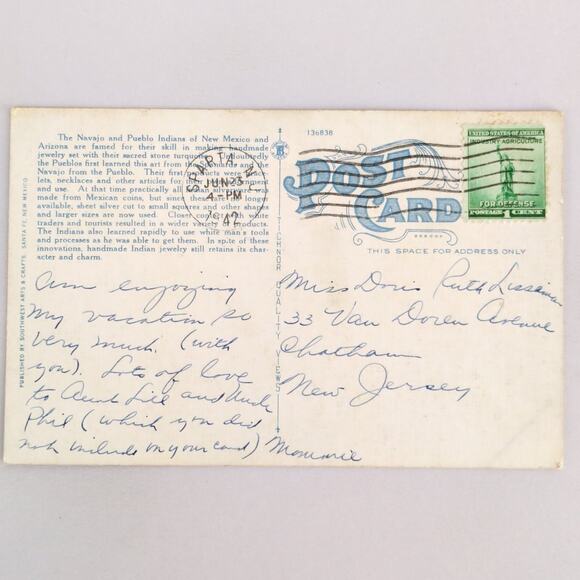 The Navajo and Pueblo Indians of New Mexico and
Arizona are famed for their skill in making handmade
jewelry set with their sacred stone turquoise. Undoubtedly
the Pueblos first learned this art from the Spaniards and the
Navajo from the Pueblo. Their first products were brace-
lets, necklaces and other articles for their own adornment
and use. At that time practically all Indian silverware was
made from Mexican coins, but since these are no longer
available, sheet silver cut to small squares and other shapes
and larger sizes are now used. Close contact with white
traders and tourists resulted in a wider variety of products.
The Indians also learned rapidly to use white man's tools
and processes as he was able to get them. In spite of these
innovations, handmade Indian jewelry still retains its char-
acter and charm.
PUBLISHED BY SOUTHWEST ARTS & CRAFTS, SANTA FE, NEW MEXICO
Am enjoying
my vacation so
very much. (with
you). Lots of love
to Aunt Lil and Uncle
Phil (which you did
not include on your card)
TICHNOR QUALITY VIEWS
136838
POST
CARD
THIS SPACE FOR ADDRESS ONLY
SPARTA
JUN 23
4-PM
42
UNITED STATES OF AMERICA
INDUSTRY AGRICULTURE
FOR DEFENSE
POSTAGE 1 CENT
Miss Doris Ruth
33 Van Doren Avenue
Chatham
New Jersey